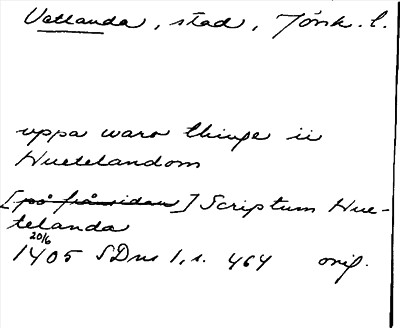 Vetlanda, stad, Jönk. l.
uppa waro thinge ii
Huetelandom
[på frånsidan] Scriptum Hue-
telanda
20/6
1405 SDns 1, s. 464 orig.